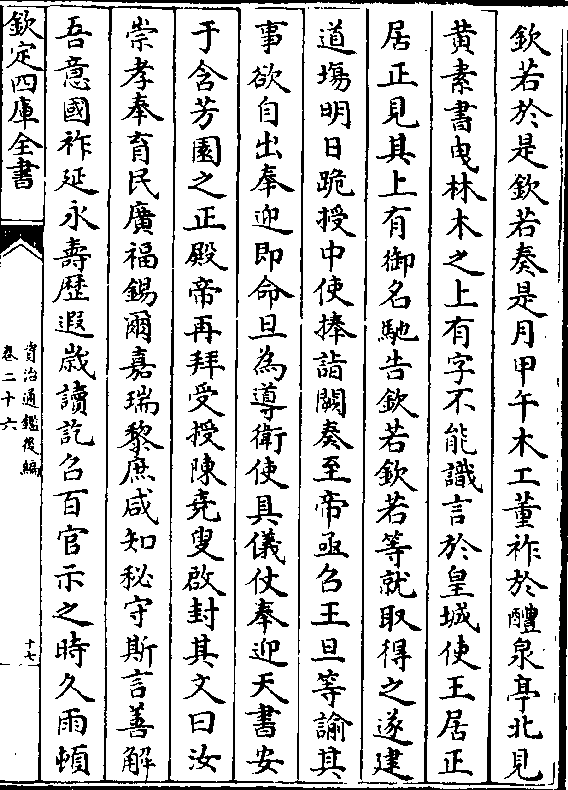 欽若於是欽若奏是月甲午木工董祚於醴泉亭北見
黄素書曳林木之上有字不能識言於皇城使王居正
居正見其上有御名馳告欽若欽若等就取得之遂建
道塲明日跪授中使捧詣闕奏至帝亟召王旦等諭其
事欲自出奉迎即命旦為導衛使具儀仗奉迎天書安
于含芳園之正殿帝再拜受授陳堯叟啟封其文曰汝
崇孝奉育民廣福錫爾嘉瑞黎庶咸知秘守斯言善解
吾意國祚延永壽歷遐歳讀訖召百官示之時久雨頓
欽定四庫全書
資治通鑑後編
卷二十六
十七